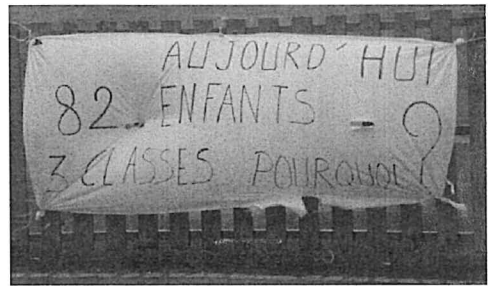 AUJOURD'HUI
82 ENFANTS
3 CLASSES POURQUOI ?